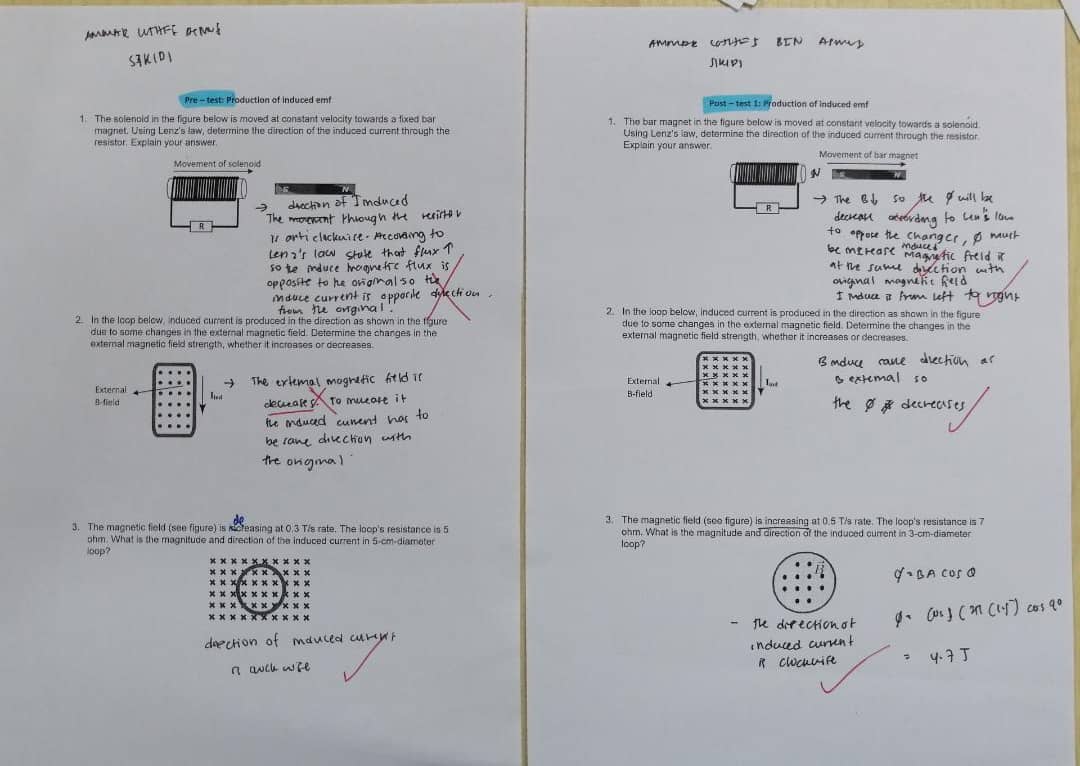 AMMAR
S3KIDI
Pre – test: Production of induced emf
1. The solenoid in the figure below is moved at constant velocity towards a fixed bar
magnet. Using Lenz's law, determine the direction of the induced current through the
resistor. Explain your answer.
Movement of solenoid
S N
R
→ direction of Induced
The movement through the resistor
is anticlockwise. According to
Lenz's law state that flux ↑
so the induce magnetic flux is
opposite to he original so the
induce current is opposite direction.
from the original.
2. In the loop below, induced current is produced in the direction as shown in the figure
due to some changes in the external magnetic field. Determine the changes in the
external magnetic field strength, whether it increases or decreases.
External
B-field
Iind
→ The external magnetic field is
decreases. To increase it
the induced current has to
be same direction with
the original
3. The magnetic field (see figure) is decreasing at 0.3 T/s rate. The loop's resistance is 5
ohm. What is the magnitude and direction of the induced current in 5-cm-diameter
loop?
direction of induced current
is clockwise
AMMAR BIN
S1KIDI
Post – test 1: Production of induced emf
1. The bar magnet in the figure below is moved at constant velocity towards a solenoid.
Using Lenz's law, determine the direction of the induced current through the resistor.
Explain your answer.
Movement of bar magnet
N S N
R
→ The B↓ so the ϕ will be
decrease according to Len's law
to oppose the changes, ϕ must
be increase induced magnetic field is
at the same direction with
original magnetic field
I induce is from left to right
2. In the loop below, induced current is produced in the direction as shown in the figure
due to some changes in the external magnetic field. Determine the changes in the
external magnetic field strength, whether it increases or decreases.
External
B-field
Iind
B induce same direction as
B external so
the ϕ decreases
3. The magnetic field (see figure) is increasing at 0.5 T/s rate. The loop's resistance is 7
ohm. What is the magnitude and direction of the induced current in 3-cm-diameter
loop?
B
ϕ = BA cos θ
- The direction of
induced current
is clockwise
ϕ = (0.5) cos 90
= 4.7 J